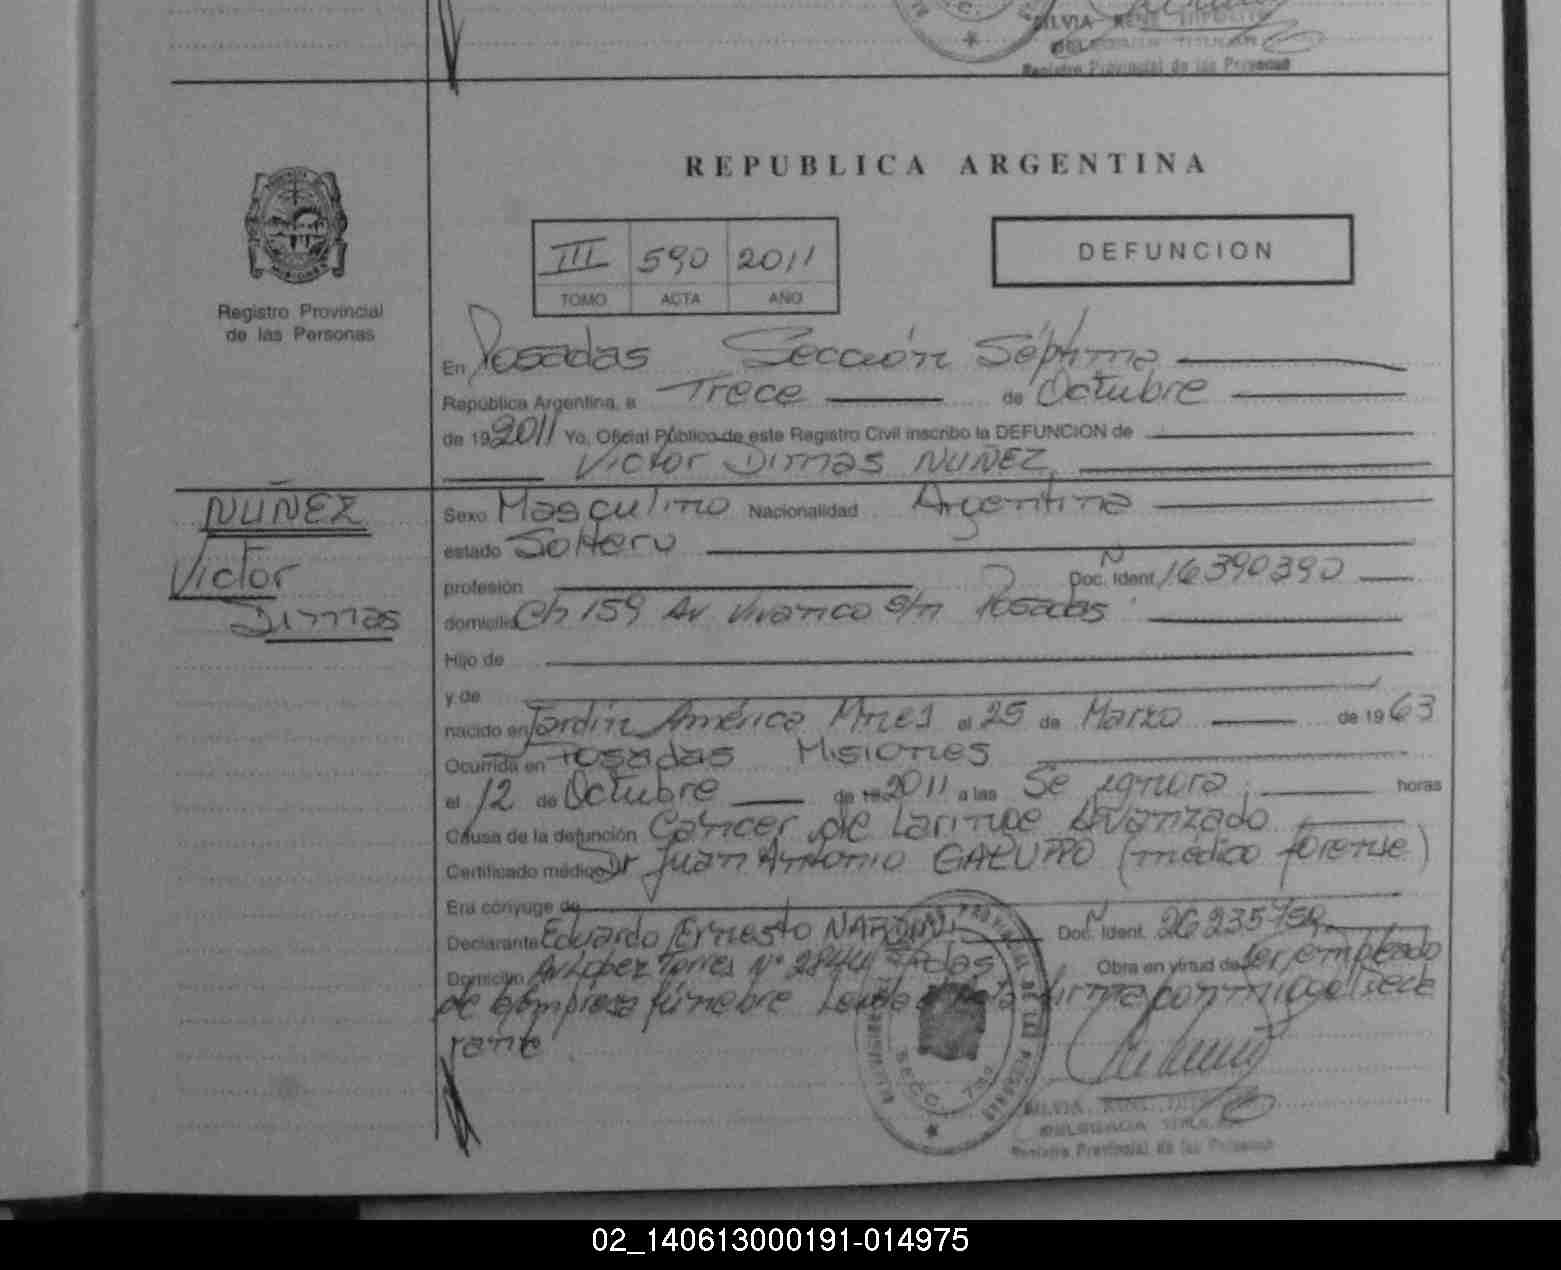 SILVIA RENE
DELEGADA TITULAR
Registro Provincial de las Personas
REPUBLICA ARGENTINA
III 590 2011
TOMO ACTA AÑO
DEFUNCION
Registro Provincial
de las Personas
En Posadas Sección Séptima
República Argentina, a Trece de Octubre
de 19 2011 Yo, Oficial Público de este Registro Civil inscribo la DEFUNCION de
Victor Dimas NUÑEZ
NUÑEZ
Victor
Dimas
Sexo Masculino Nacionalidad Argentina
estado Soltero
profesión Doc. Ident. 16390390
domicilio Ch 159 Av s/n Posadas
Hijo de
y de
nacido en Jardín América Mnes el 25 de Marzo de 19 63
Ocurrida en Posadas Misiones
el 12 de Octubre de 19 2011 a las Se ignora horas
Causa de la defunción Cáncer de Laringe Avanzado
Certificado médico Dr Juan Antonio GALUPPO (médico forense)
Era cónyuge de
Declarante Eduardo Ernesto Doc. Ident.
Domicilio Av López Torres N° 2844 Pdas Obra en virtud de ser empleado
de Empresa fúnebre Leída el Acta firma conmigo el decla
rante
REGISTRO PROVINCIAL DE LAS PERSONAS
SECC. 7ma
SILVIA RENE
DELEGADA TITULAR
Registro Provincial de las Personas
02_140613000191-014975